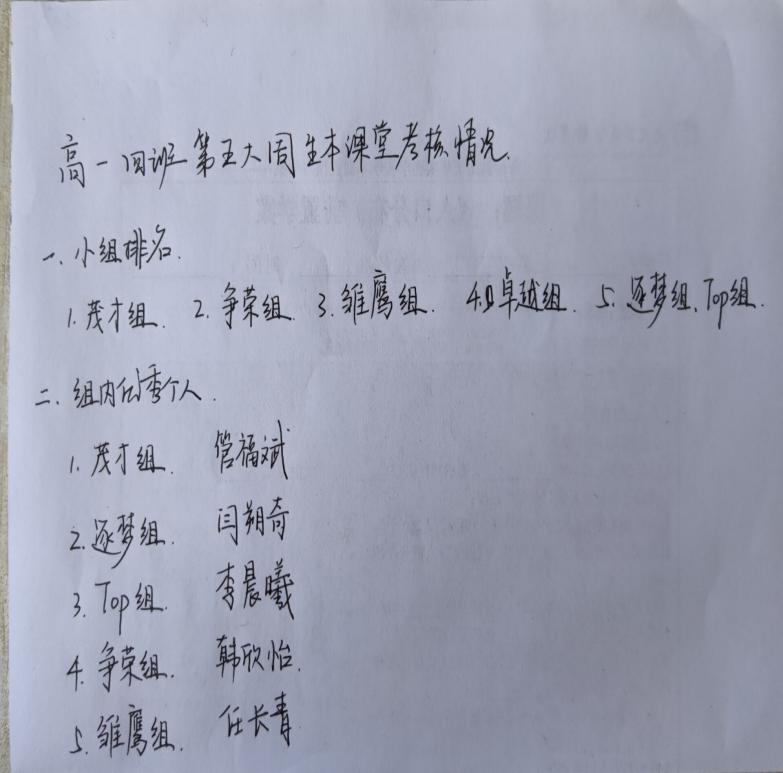 高一四班第五大周生本课堂考核情况.
一、小组排名.
1.茂才组. 2.争荣组. 3.雏鹰组. 4.卓越组. 5.逐梦组、Top组.
二、组内优秀个人.
1.茂才组. 管福斌
2.逐梦组. 闫朔奇
3.Top组. 李晨曦
4.争荣组. 韩欣怡.
5.雏鹰组. 任长青